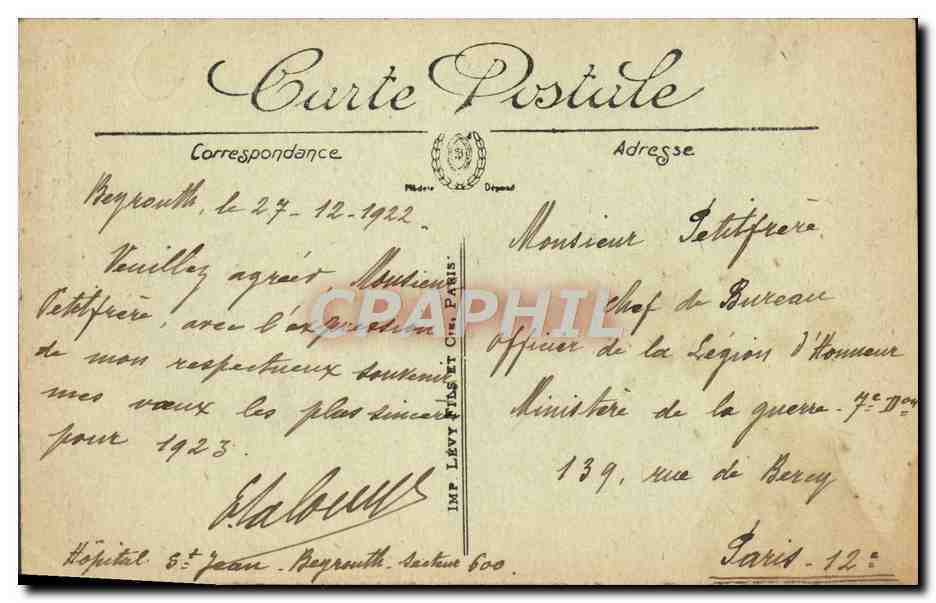 Carte Postale
Correspondance
Adresse
Modèle Déposé
Beyrouth, le 27-12-1922.
Veuillez agréer, Monsieur
Petitfrère, avec l'expression
de mon respectueux souvenir
mes vœux les plus sincères
pour 1923.
Hôpital St Jean - Beyrouth - secteur 600.
IMP. LÉVY FILS ET Cie, PARIS
Monsieur Petitfrère
Chef de Bureau
Officier de la Légion d'Honneur
Ministère de la guerre - 7e Don
139, rue de Bercy
Paris - 12e
CPAPHIL